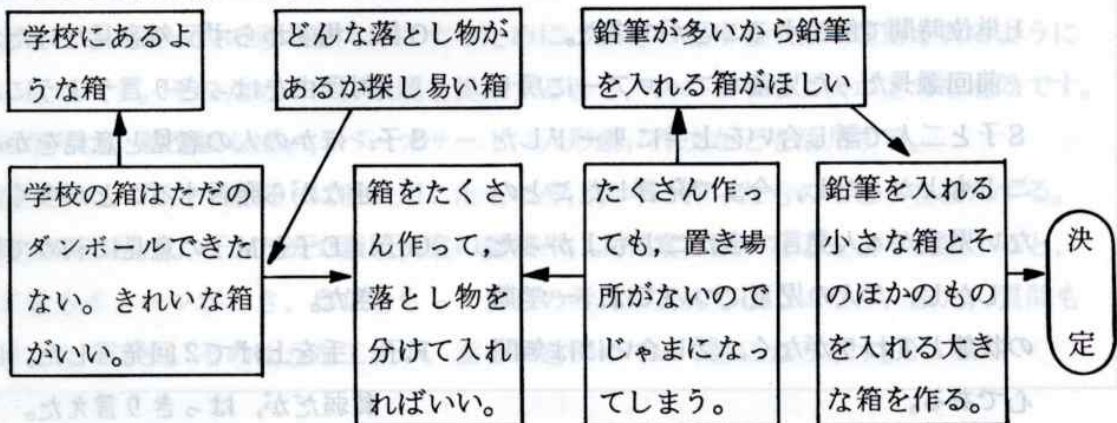 学校にあるよ
うな箱
どんな落とし物が
あるか探し易い箱
鉛筆が多いから鉛筆
を入れる箱がほしい
学校の箱はただの
ダンボールできた
ない。きれいな箱
がいい。
箱をたくさ
ん作って，
落とし物を
分けて入れ
ればいい。
たくさん作っ
ても，置き場
所がないので
じゃまになっ
てしまう。
鉛筆を入れる
小さな箱とそ
のほかのもの
を入れる大き
な箱を作る。
決
定